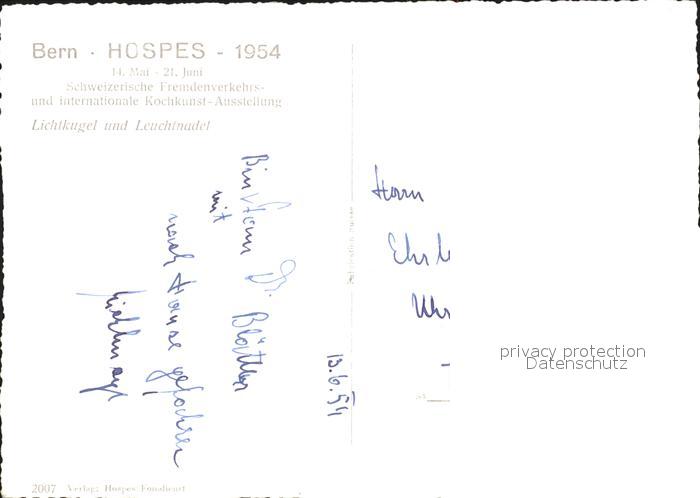 Bern · HOSPES - 1954
14. Mai - 21. Juni
Schweizerische Fremdenverkehrs-
und internationale Kochkunst-Ausstellung
Lichtkugel und Leuchtnadel
Bin Herrn Dr. Blättler
mit
nach Hause gefahren
13.6.54
Herrn
privacy protection
Datenschutz
2007 Verlag: Hospes Fotodienst